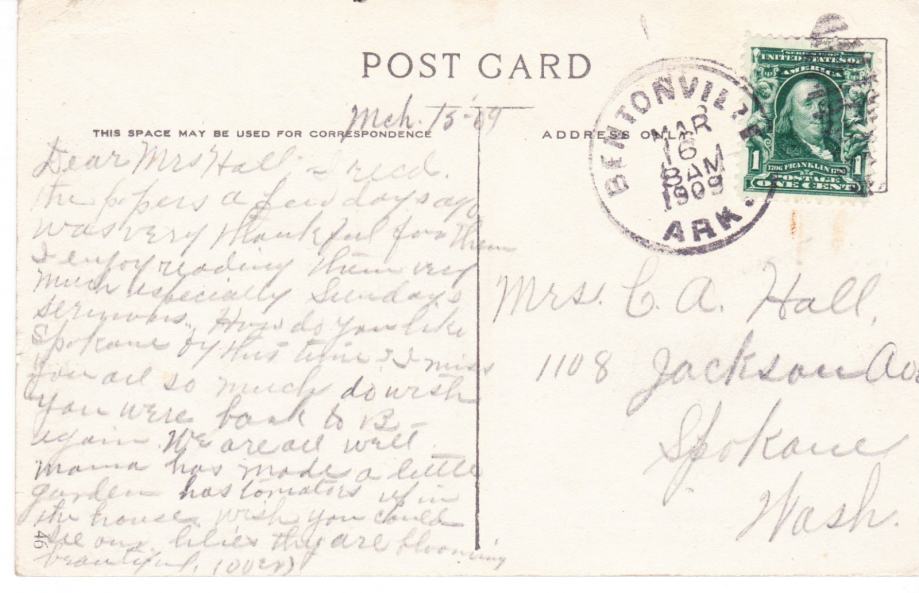 POST CARD
Mch. 15-09
THIS SPACE MAY BE USED FOR CORRESPONDENCE
ADDRESS ONLY
BENTONVILLE
MAR
16
8 AM
1909
ARK.
SERIES OF
UNITED STATES OF
AMERICA
1706 FRANKLIN 1790
1 POSTAGE 1
ONE CENT
Dear Mrs Hall:- I recd.
the papers a few days ago
was very thankful for them
I enjoy reading them very
much especially Sunday's
sermons. How do you like
Spokane by this time? I miss
you all so much do wish
you were back to B-
again. We are all well
mama has made a little
garden has tomatoes up in
the house. wish you could
see our lilies they are blooming
beautiful. (over)
46
Mrs. C. A. Hall,
1108 Jackson Ave
Spokane
Wash.